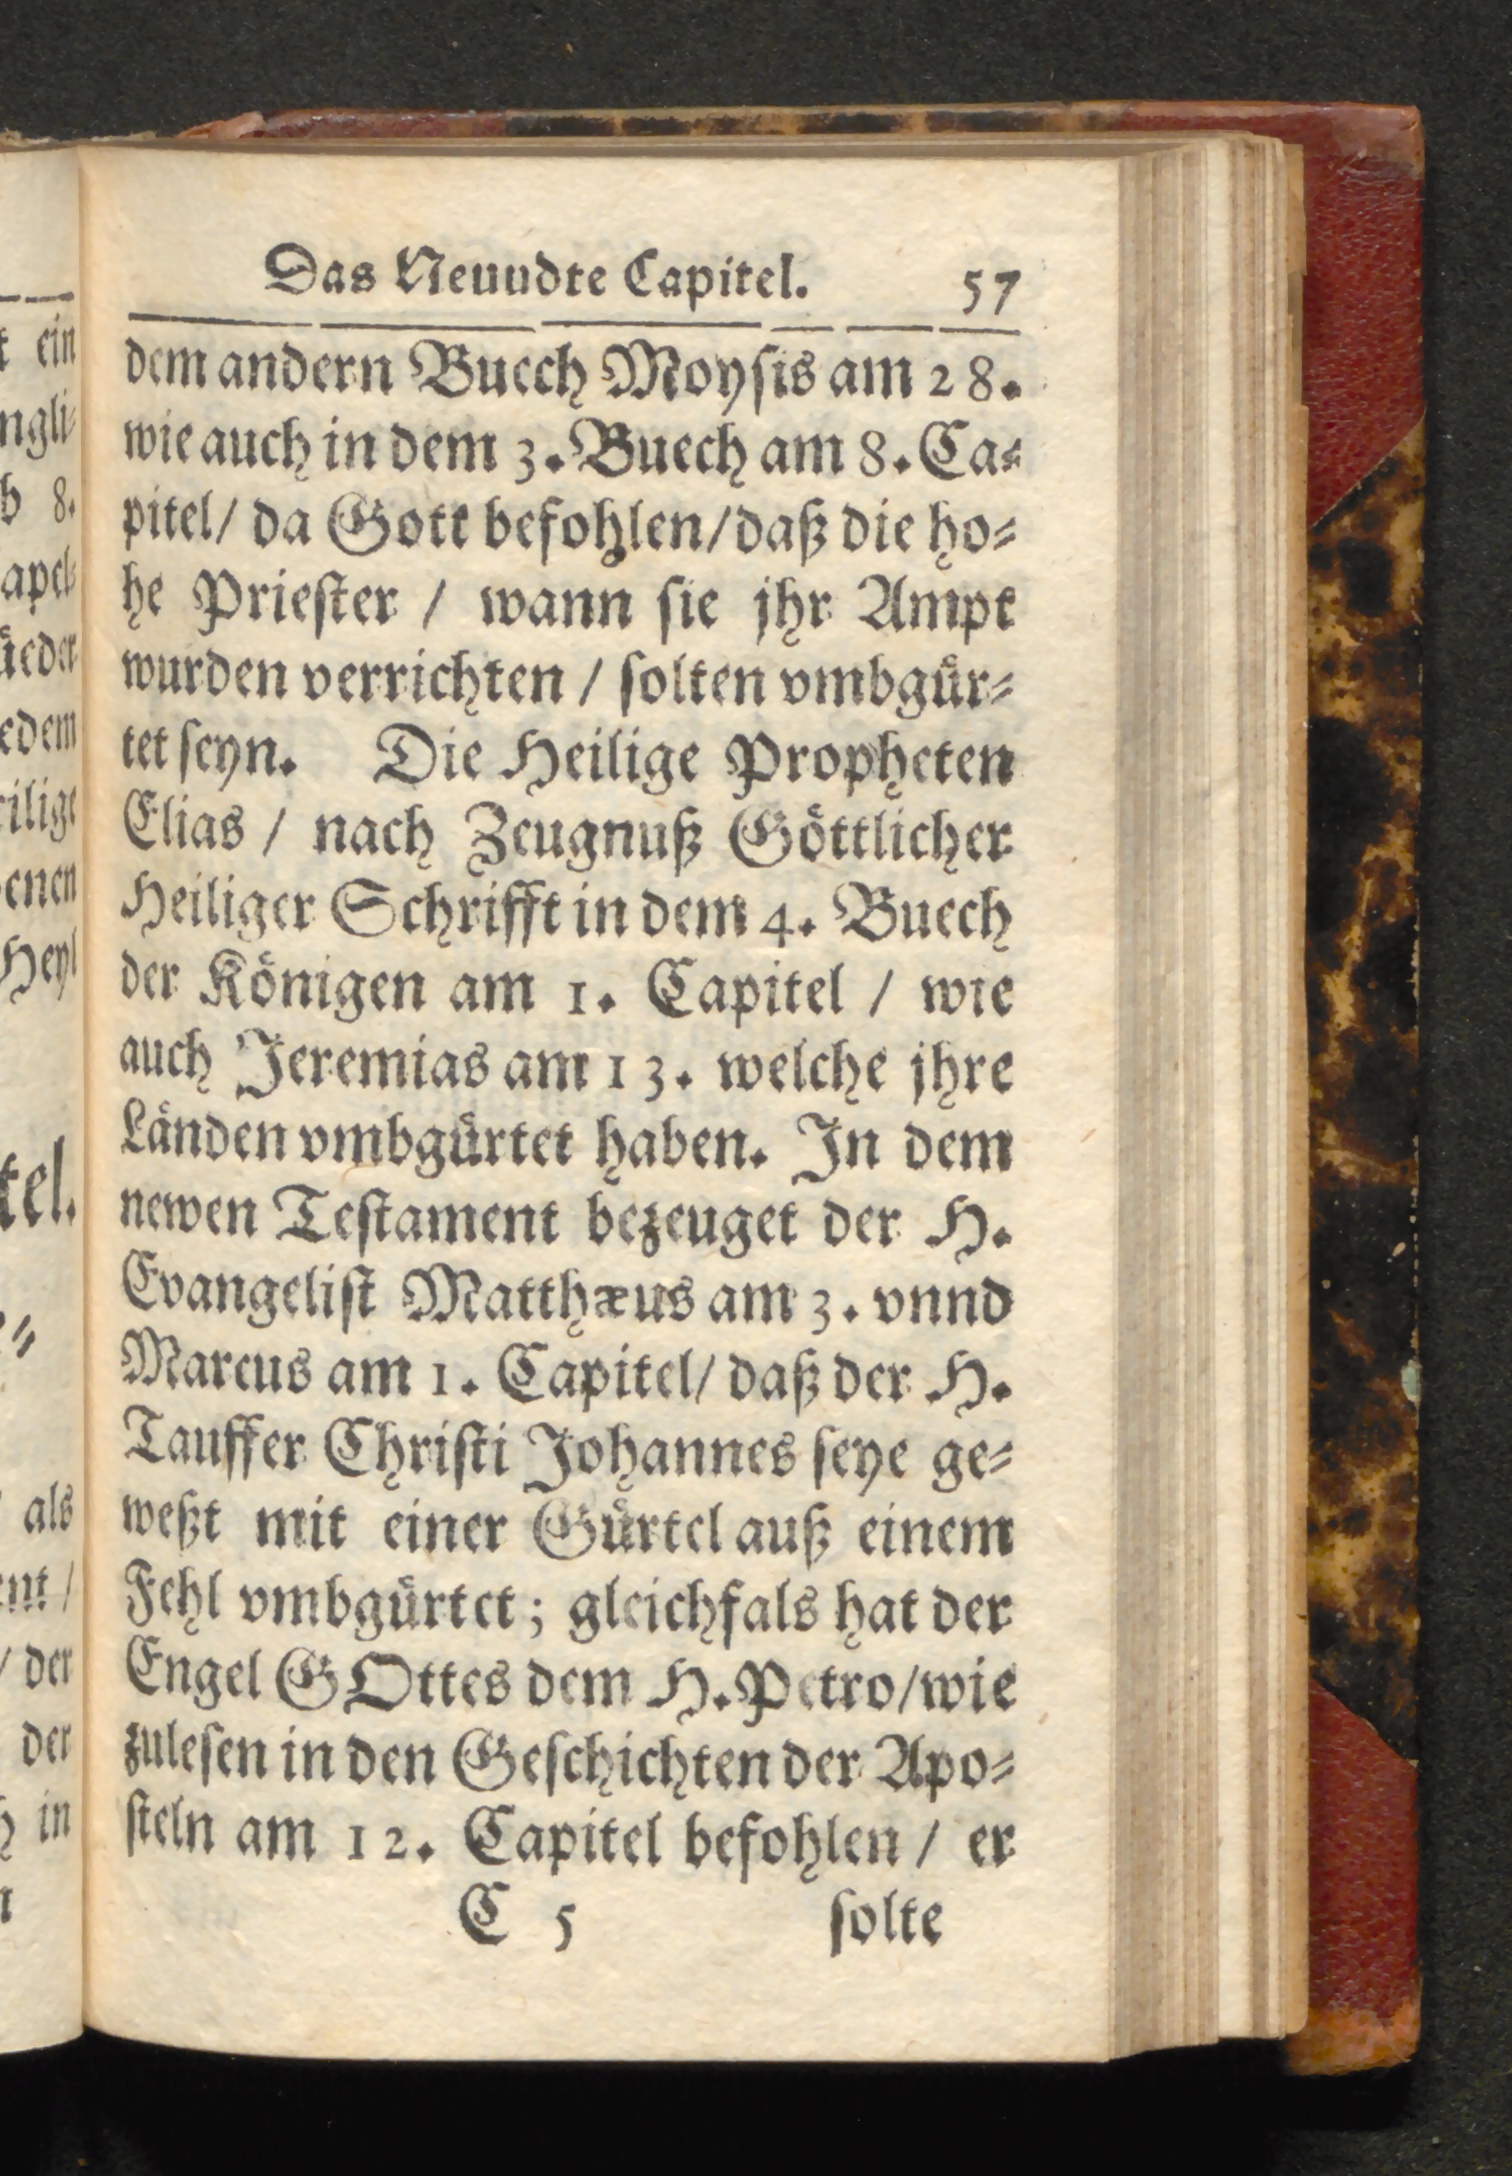 Das Neuudte Capitel. 57
dem andern Buech Moysis am 28.
wie auch in dem 3. Buech am 8. Ca-
pitel/ da Gott befohlen/ daß die ho-
he Priester / wann sie jhr Ampt
wurden verrichten / solten vmbgür-
tet seyn. Die Heilige Propheten
Elias / nach Zeugnuß Göttlicher
Heiliger Schrifft in dem 4. Buech
der Königen am 1. Capitel / wie
auch Jeremias am 13. welche jhre
Länden vmbgürtet haben. In dem
newen Testament bezeuget der H.
Evangelist Matthæus am 3. vnnd
Marcus am 1. Capitel/ daß der H.
Tauffer Christi Johannes seye ge-
weßt mit einer Gürtel auß einem
Fehl vmbgürtet; gleichfals hat der
Engel GOttes dem H. Petro/ wie
zulesen in den Geschichten der Apo-
steln am 12. Capitel befohlen / er
C 5 solte